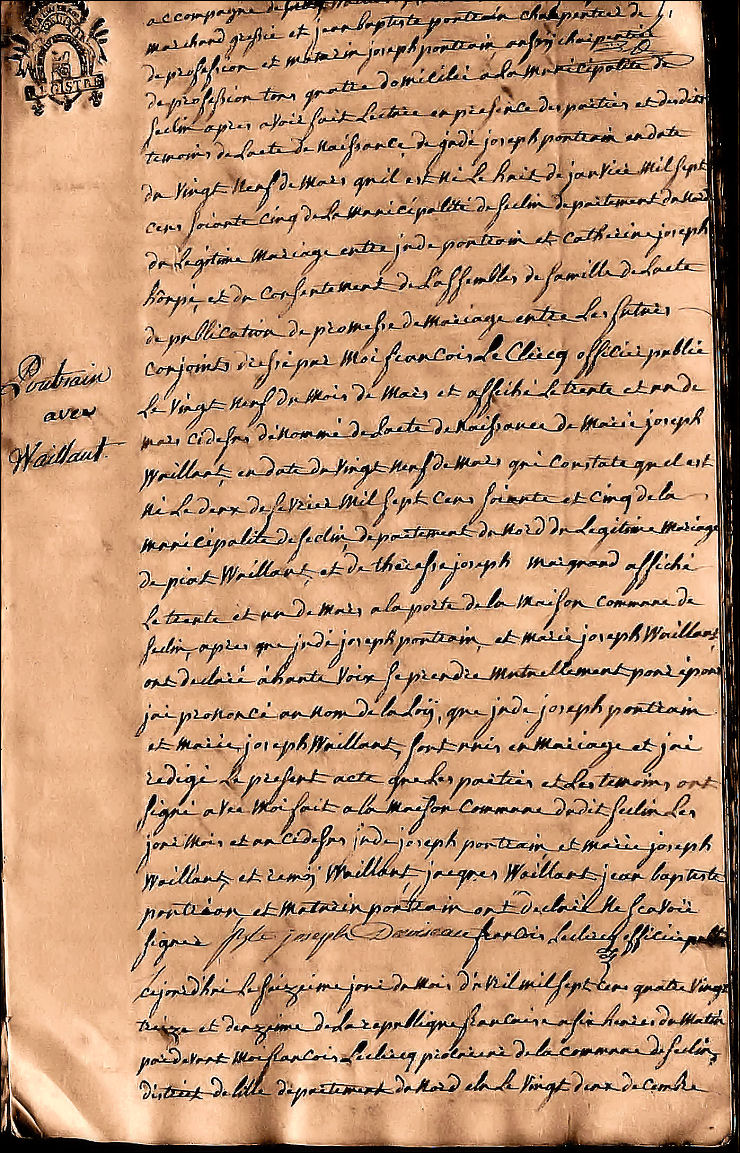 accompagné de
marchand gressié et jean baptiste pontrain charpentier de
de profession et maturin joseph pontrain aussy charpentier
de profession tous quatre domiciliés a la municipalité de
seclin apres avoir fait Lecture en presence des parties et desdits
temoins de Lacte de naissance de jude joseph pontrain en date
du vingt neuf de mars qu'il est né Le huit de janvier mil sept
cens soixante cinq de La municipalité de seclin departement du nord
du Legitime mariage entre jude pontrain et catherine joseph
et du consentement de L'assemblée de famille de Lacte
de publication de promesse de mariage entre Les futurs
conjoints dressé par moi francois Le Clecq officier public
Le vingt neuf du mois de mars et affiché Le trente et un de
mars cidessus dénommé de Lacte de naissance de marie joseph
Waillant, en date du vingt neuf de mars qui constate quel est
né Le deux de fevrier mil sept cens soixante et cinq de la
municipalité de seclin, departement du nord du Legitime mariage
de piat Waillant, et de theresse joseph maignand affiché
Le trente et un de mars a la porte de la maison commune de
seclin, apres que jude joseph pontrain, et marie joseph Waillant
ont declaré á haute voix se prendre mutuellement pour époux
jai prononcé au nom de la Loÿ, que jude joseph pontrain
et marie joseph Waillant, sont unis en mariage et jai
redigé Le present acte que Les parties et Les temoins ont
signé avec moi fait a la maison commune dudit seclin Les
jour mois et an cidessus jude joseph pontrain et marie joseph
Waillant, et remÿ Waillant jacques Waillant jean baptiste
pontrain, et maturin pontrain ont declaré ne scavoir
signer joseph francois Leclecq officier public
Poutrain
avec
Waillant
cejourd'hui Le seizeime jour du mois d'avril mil sept cens quatre vingt
treize et deuxzeime de La republique francaise a six heures du matin
pardevant moi francois Leclecq de la commune de seclin
district de lille departement du nord elu Le vingt deux decembre